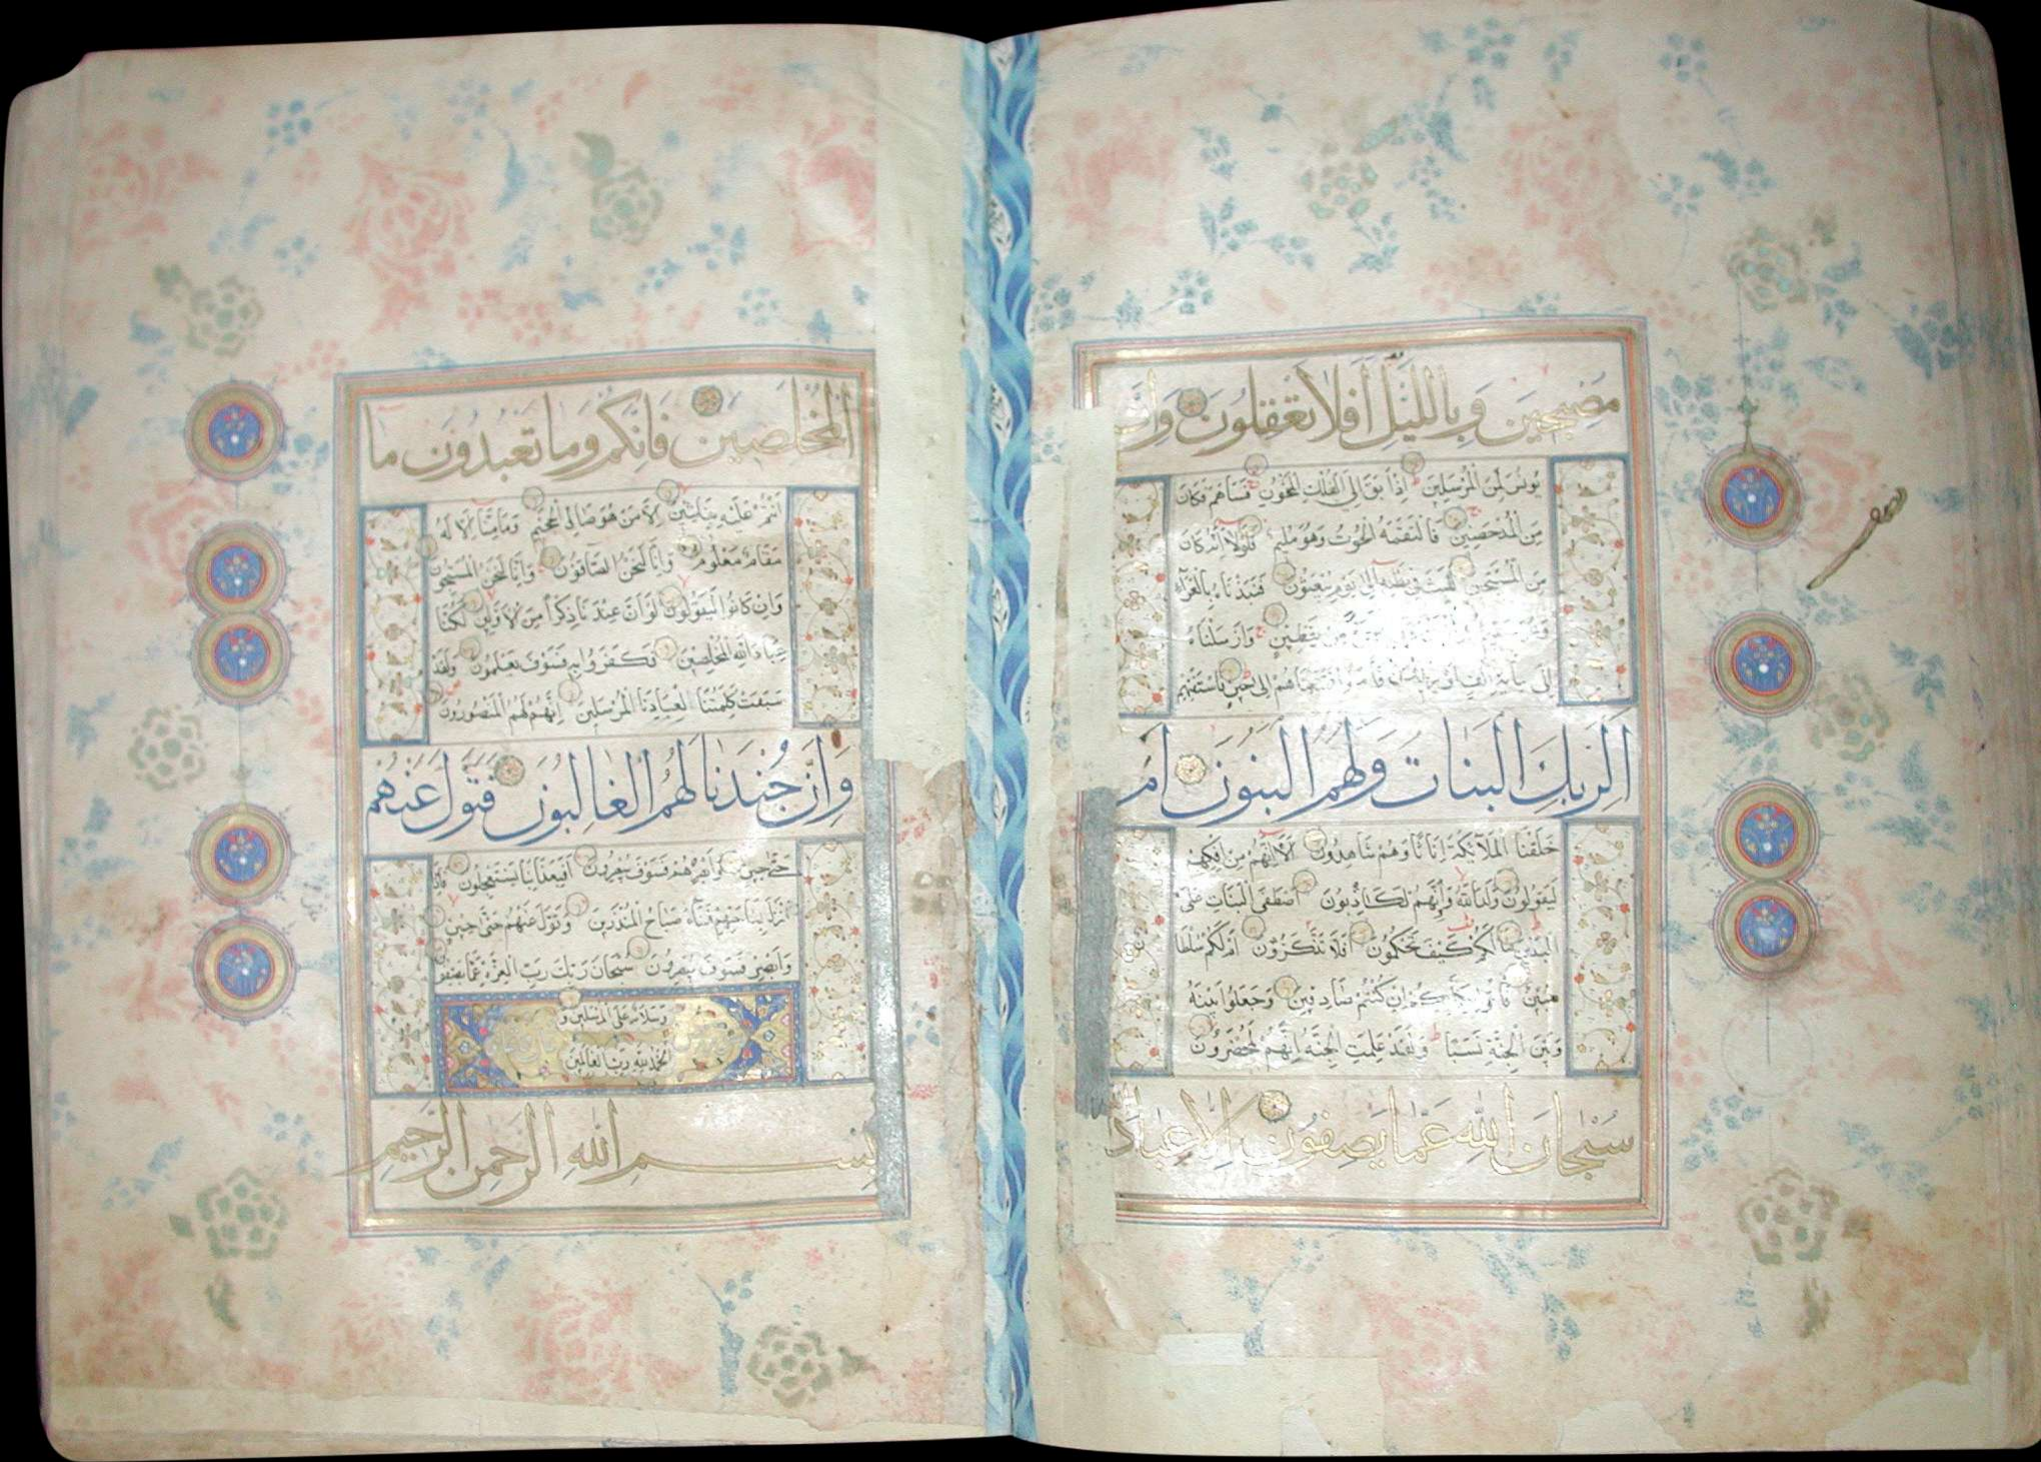 مصبحين وبالليل أفلا تعقلون وإن
يونس لمن المرسلين إذ أبق إلى الفلك المشحون فساهم فكان
من المدحضين فالتقمه الحوت وهو مليم فلولا أنه كان
من المسبحين للبث في بطنه إلى يوم يبعثون فنبذناه بالعراء
من يقطين وأرسلناه
إلى مائة ألف أو يزيدون فآمنوا فمتعناهم إلى حين فاستفتهم
ألربك البنات ولهم البنون أم
خلقنا الملائكة إناثا وهم شاهدون ألا إنهم من إفكهم
ليقولون ولد الله وإنهم لكاذبون أصطفى البنات على
البنين ما لكم كيف تحكمون أفلا تذكرون أم لكم سلطا
مبين فأتوا بكتابكم إن كنتم صادقين وجعلوا بينه
وبين الجنة نسبا ولقد علمت الجنة إنهم لمحضرون
سبحان الله عما يصفون إلا عباد
المخلصين فإنكم وما تعبدون ما
أنتم عليه بفاتنين إلا من هو صال الجحيم وما منا إلا له
مقام معلوم وإنا لنحن الصافون وإنا لنحن المسبحون
وإن كانوا ليقولون لو أن عندنا ذكرا من الأولين لكنا
عباد الله المخلصين فكفروا به فسوف يعلمون ولقد
سبقت كلمتنا لعبادنا المرسلين إنهم لهم المنصورون
وإن جندنا لهم الغالبون فتول عنهم
حتى حين وأبصرهم فسوف يبصرون أفبعذابنا يستعجلون فإذا
نزل بساحتهم فساء صباح المنذرين وتول عنهم حتى حين
وأبصر فسوف يبصرون سبحان ربك رب العزة عما يصفون
وسلام على المرسلين و
الحمد لله رب العالمين
بسم الله الرحمن الرحيم